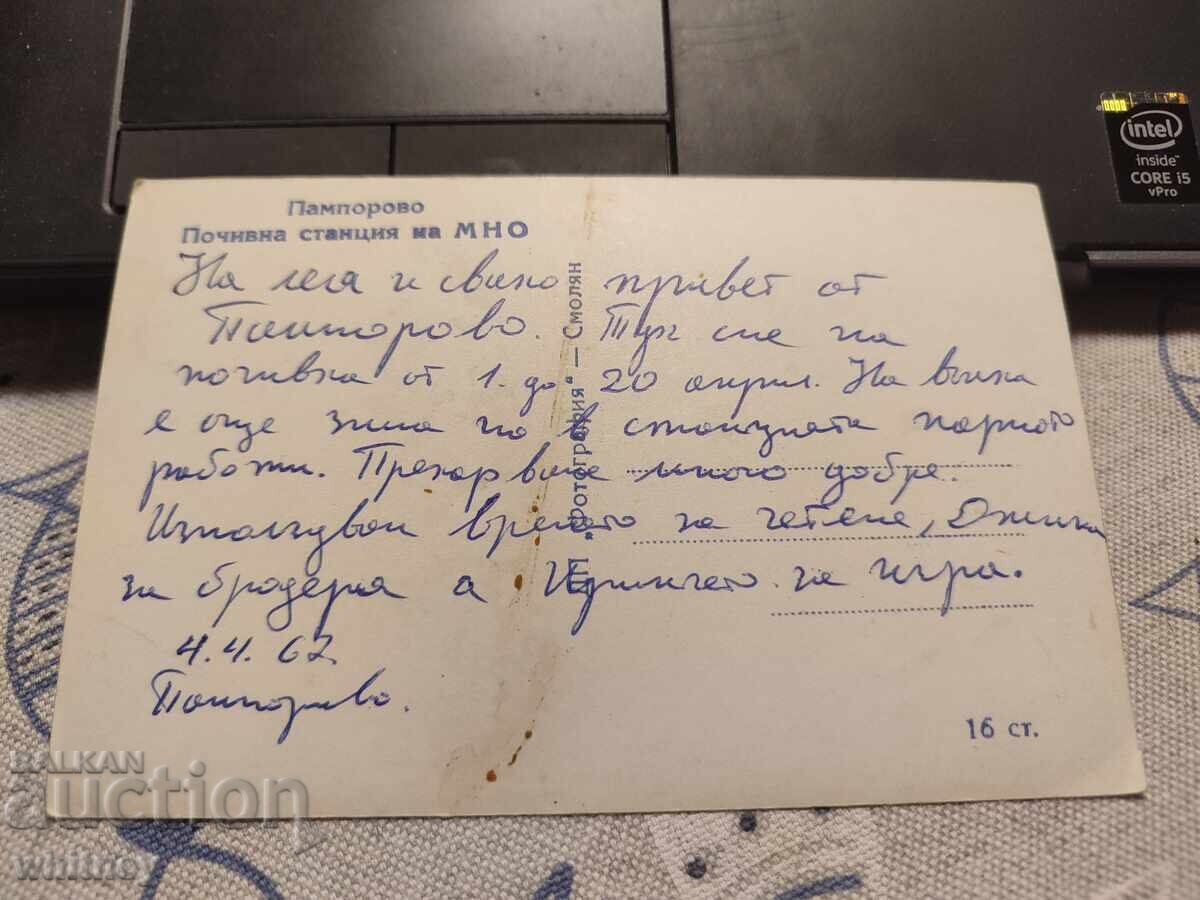 Пампорово
Почивна станция на МНО
На леля и свако привет от
Пампорово. Тук сме на
почивка от 1. до 20 април. На вънка
е още зима но в станцията парното
работи. Прекарваме много добре.
Използувам времето за четене,
за бродерия а за игра.
4.4.62
Пампорово.
ДП „Фотография“ — Смолян
16 ст.
intel
inside™
CORE i5
vPro
BALKAN
auction
whitney